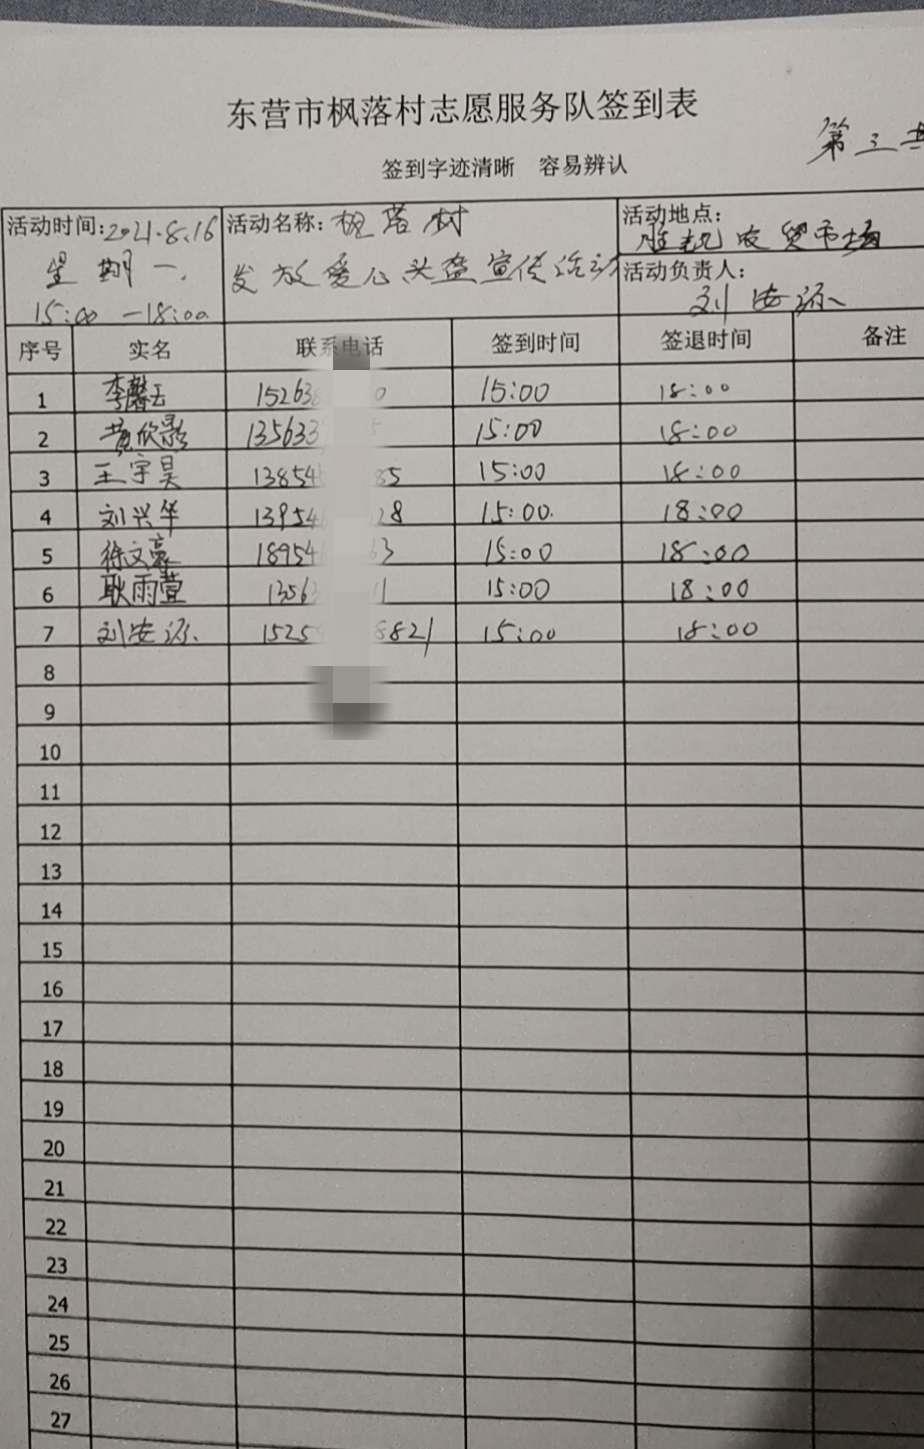 东营市枫落村志愿服务队签到表
第三
签到字迹清晰 容易辨认
活动时间:2021.8.16 星期一. 15:00 —18:00
活动名称:枫落村 发放爱心头盔宣传活动
活动地点: 农贸市场
活动负责人: 刘安源
序号 实名 联系电话 签到时间 签退时间 备注
1 李馨云 15263 0 15:00 18:00
2 黄欣影 135633 15:00 18:00
3 王宇昊 13854 85 15:00 18:00
4 刘兴华 13954 28 15:00. 18:00
5 徐文豪 18954 63 15:00 18:00
6 耿雨萱 1356 11 15:00 18:00
7 刘安源. 1525 8821 15:00 18:00
8
9
10
11
12
13
14
15
16
17
18
19
20
21
22
23
24
25
26
27